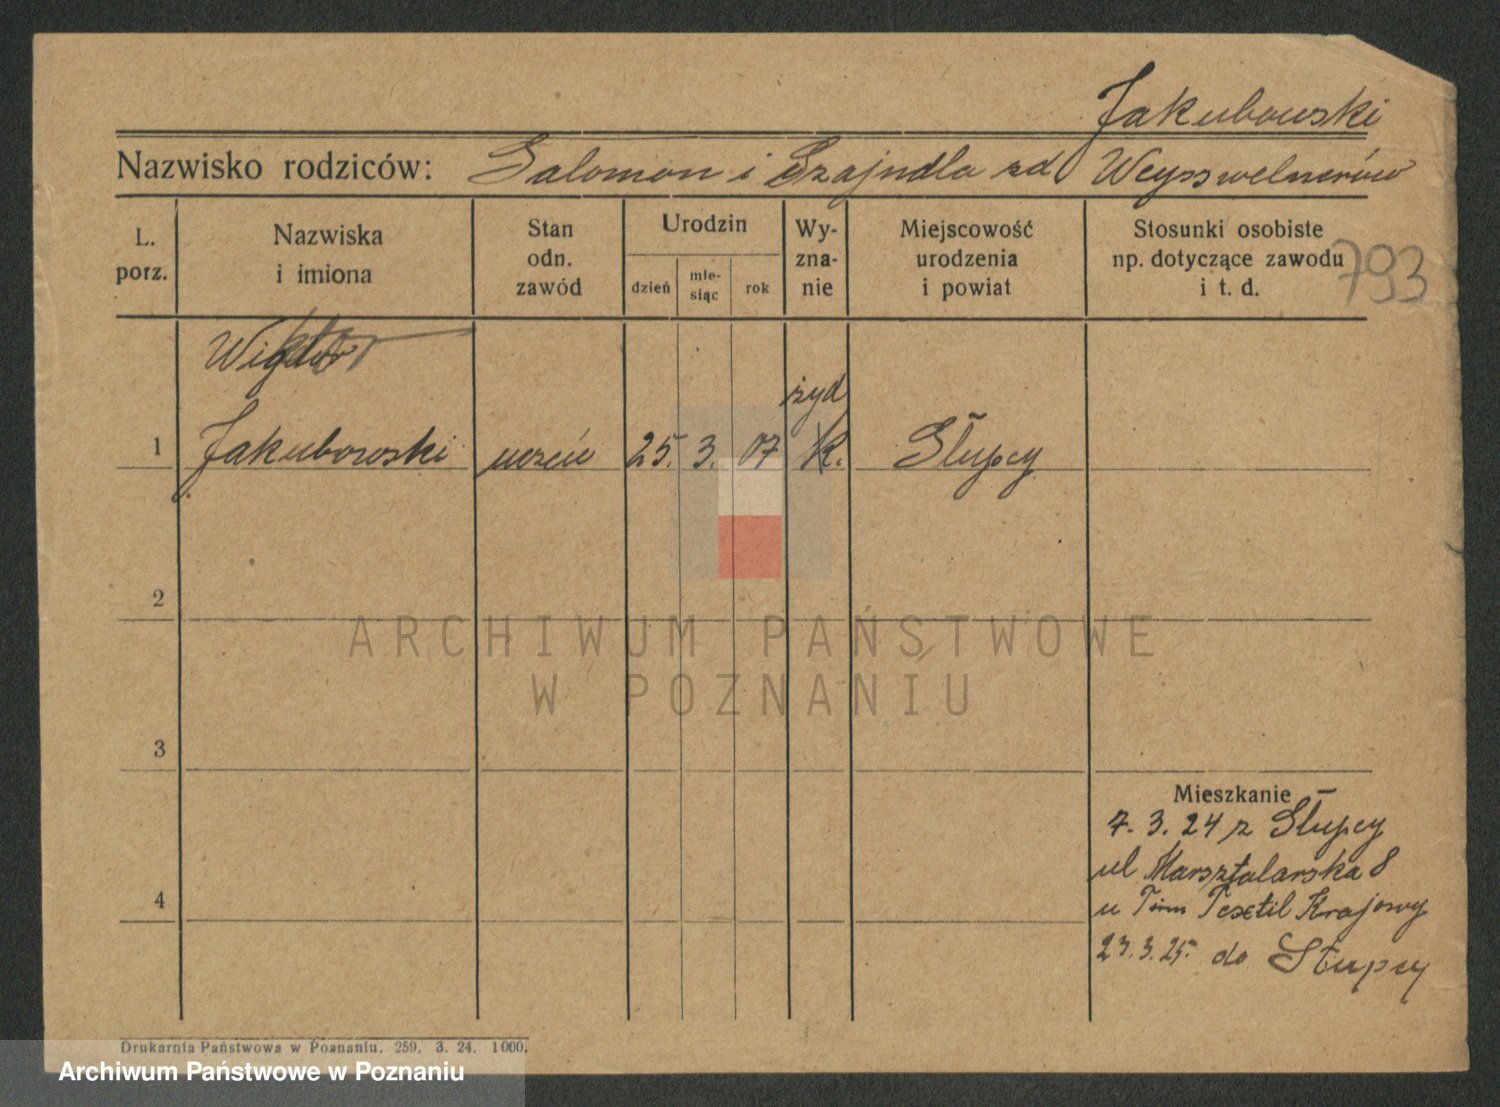 Jakubowski
Nazwisko rodziców: Salomon i Szajndla zd Weysswelnerów
L. porz.
Nazwiska i imiona
Stan odn. zawód
Urodzin
dzień
mie-siąc
rok
Wy-zna-nie
Miejscowość urodzenia i powiat
Stosunki osobiste np. dotyczące zawodu i t. d.
793
Wigdor
żyd
1 Jakubowski uczeń 25. 3. 07 K. Słupcy
2
3
4
Mieszkanie
7. 3. 24 z Słupcy
ul Marsztalarska 8
u Textil Krajowy
23. 3. 25. do Słupcy
Drukarnia Państwowa w Poznaniu. 259. 3. 24. 1000.
ARCHIWUM PAŃSTWOWE
W POZNANIU
Archiwum Państwowe w Poznaniu